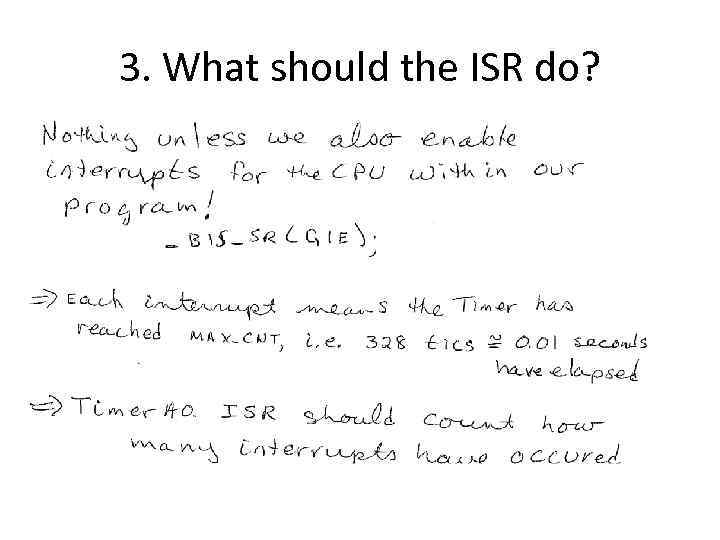 3. What should the ISR do?
Nothing unless we also enable
interrupts for the CPU with in our
program!
_BIS_SR(GIE);
=> Each interrupt means the Timer has
reached MAX_CNT, i.e. 328 tics ≅ 0.01 seconds
have elapsed
=> Timer A0 ISR should count how
many interrupts have occured